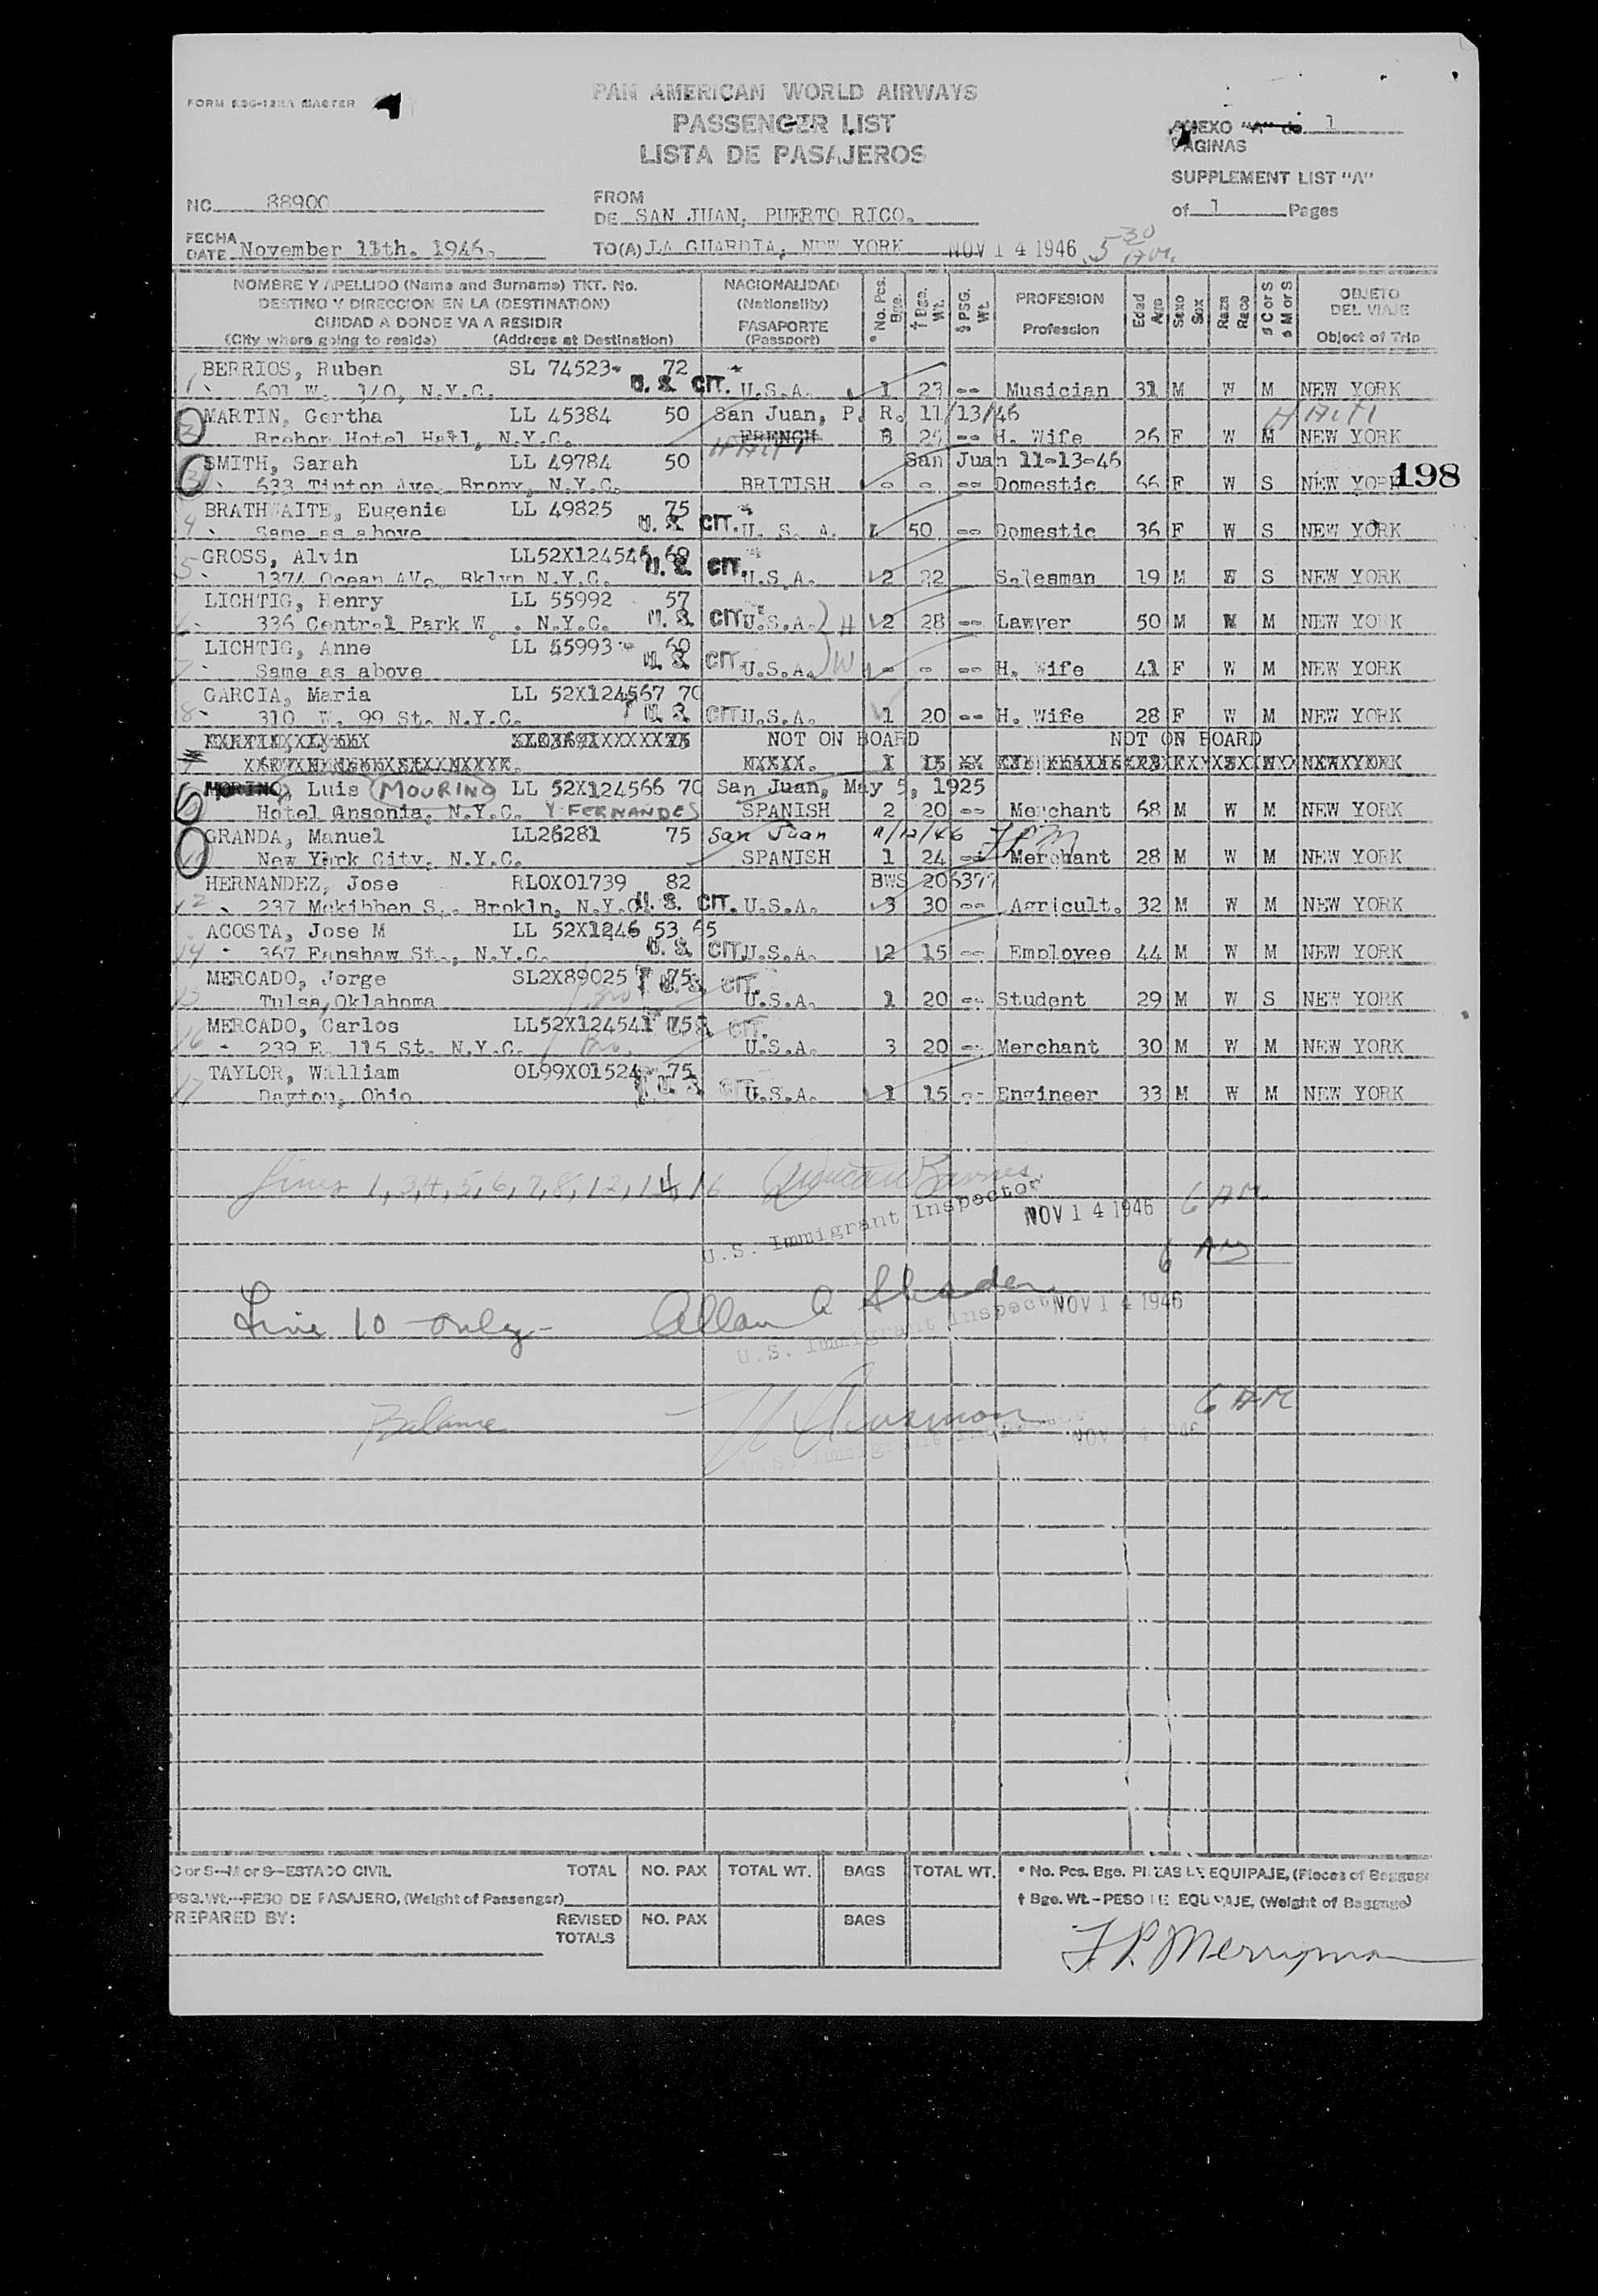 FORM 536-122A MASTER
PAN AMERICAN WORLD AIRWAYS
PASSENGER LIST
LISTA DE PASAJEROS
ANEXO "A" de 1
PAGINAS
SUPPLEMENT LIST "A"
of 1 Pages
NC 88900
FROM
DE SAN JUAN, PUERTO RICO.
FECHA
DATE November 13th. 1946.
TO(A) LA GUARDIA, NEW YORK NOV 14 1946 5 30 A.M.
NOMBRE Y APELLIDO (Name and Surname) TKT. No.
DESTINO Y DIRECCION EN LA (DESTINATION)
CUIDAD A DONDE VA A RESIDIR
(City where going to reside) (Address at Destination)
NACIONALIDAD
(Nationality)
PASAPORTE
(Passport)
No. Pcs. Bge.
† Bge. Wt.
§ PSG. Wt.
PROFESION
Profession
Edad Age
Sexo Sex
Raza Race
C or S
M or S
OBJETO
DEL VIAJE
Object of Trip
1 BERRIOS, Ruben SL 74523 72
601 W. 140, N.Y.C. U. S. CIT. U.S.A. 1 23 -- Musician 31 M W M NEW YORK
2 MARTIN, Gertha LL 45384 50 San Juan, P. R. 11/13/46 HAITI
Hotel N.Y.C. FRENCH HAITI -- H. Wife 26 F W M NEW YORK
3 SMITH, Sarah LL 49784 50 San Juan 11-13-46
633 Tinton Ave. Bronx, N.Y.C. BRITISH - - -- Domestic 66 F W S NEW YORK
198
4 BRATHWAITE, Eugenie LL 49825 75
Same as above U. S. CIT. U. S. A. 50 -- Domestic 36 F W S NEW YORK
5 GROSS, Alvin LL52X124546 69
1374 Ocean AV. Bklyn N.Y.C. U. S. CIT. U.S.A. 2 22 Salesman 19 M S NEW YORK
6 LICHTIG, Henry LL 55992 57
336 Central Park W. N.Y.C. U. S. CIT. U.S.A. H 2 28 -- Lawyer 50 M W M NEW YORK
7 LICHTIG, Anne LL 55993 60
Same as above U. S. CIT. U.S.A. W - - -- H. Wife 41 F W M NEW YORK
8 GARCIA, Maria LL 52X124567 70
310 W. 99 St. N.Y.C. U. S. CIT. U.S.A. 1 20 -- H. Wife 28 F W M NEW YORK
NOT ON BOARD NOT ON BOARD
MORINO, Luis MOURINO LL 52X124566 70 San Juan, May 5, 1925
Hotel Ansonia, N.Y.C. Y FERNANDES SPANISH 2 20 -- Merchant 68 M W M NEW YORK
GRANDA, Manuel LL26281 75 San Juan 11/12/46 FPM
New York City, N.Y.C. SPANISH 1 24 -- Merchant 28 M W M NEW YORK
12 HERNANDEZ, Jose RLOX01739 82 BWS 206377
237 Mckibben S. Brokln, N.Y.C. U. S. CIT. U.S.A. 3 30 -- Agricult. 32 M W M NEW YORK
14 ACOSTA, Jose M LL 52X1246 53 65
367 Fanshaw St., N.Y.C. U. S. CIT. U.S.A. 2 15 -- Employee 44 M W M NEW YORK
MERCADO, Jorge SL2X89025 75
Tulsa, Oklahoma U. S. CIT. U.S.A. 1 20 -- Student 29 M W S NEW YORK
16 MERCADO, Carlos LL52X124541 75
239 E. 115 St. N.Y.C. U. S. CIT. U.S.A. 3 20 -- Merchant 30 M W M NEW YORK
17 TAYLOR, William OL99X01524 75
Dayton, Ohio U. S. CIT. U.S.A. 1 15 -- Engineer 33 M W M NEW YORK
Lines 1, 3, 4, 5, 6, 7, 8, 12, 14, 16
U.S. Immigrant Inspector NOV 14 1946 6 AM
6 AM
Line 10 only - Allan
U.S. Immigrant Inspector NOV 14 1946
Balance 6 AM
C or S--M or S--ESTADO CIVIL
PSG.Wt.--PESO DE PASAJERO, (Weight of Passenger)
PREPARED BY:
TOTAL NO. PAX TOTAL WT. BAGS TOTAL WT.
REVISED TOTALS NO. PAX BAGS
* No. Pcs. Bge. PIEZAS DE EQUIPAJE, (Pieces of Baggage
† Bge. Wt.-PESO DE EQUIPAJE, (Weight of Baggage)
F. P. Merryman